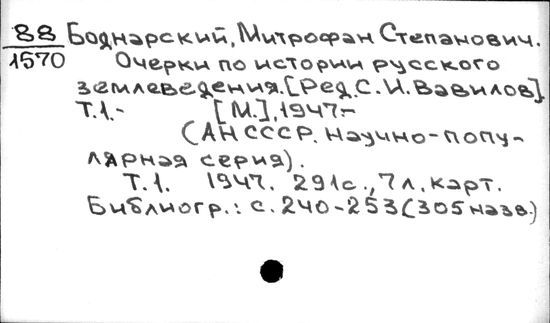 88 Боднарский, Митрофан Степанович.
1570 Очерки по истории русского
землеведения. [Ред. С. И. Вавилов].
Т.1.- [М.], 1947.-
(АН СССР. Научно-попу-
лярная серия).
Т.1. 1947. 291с., 7л. карт.
Библиогр.: с. 240-253 (305 назв.)